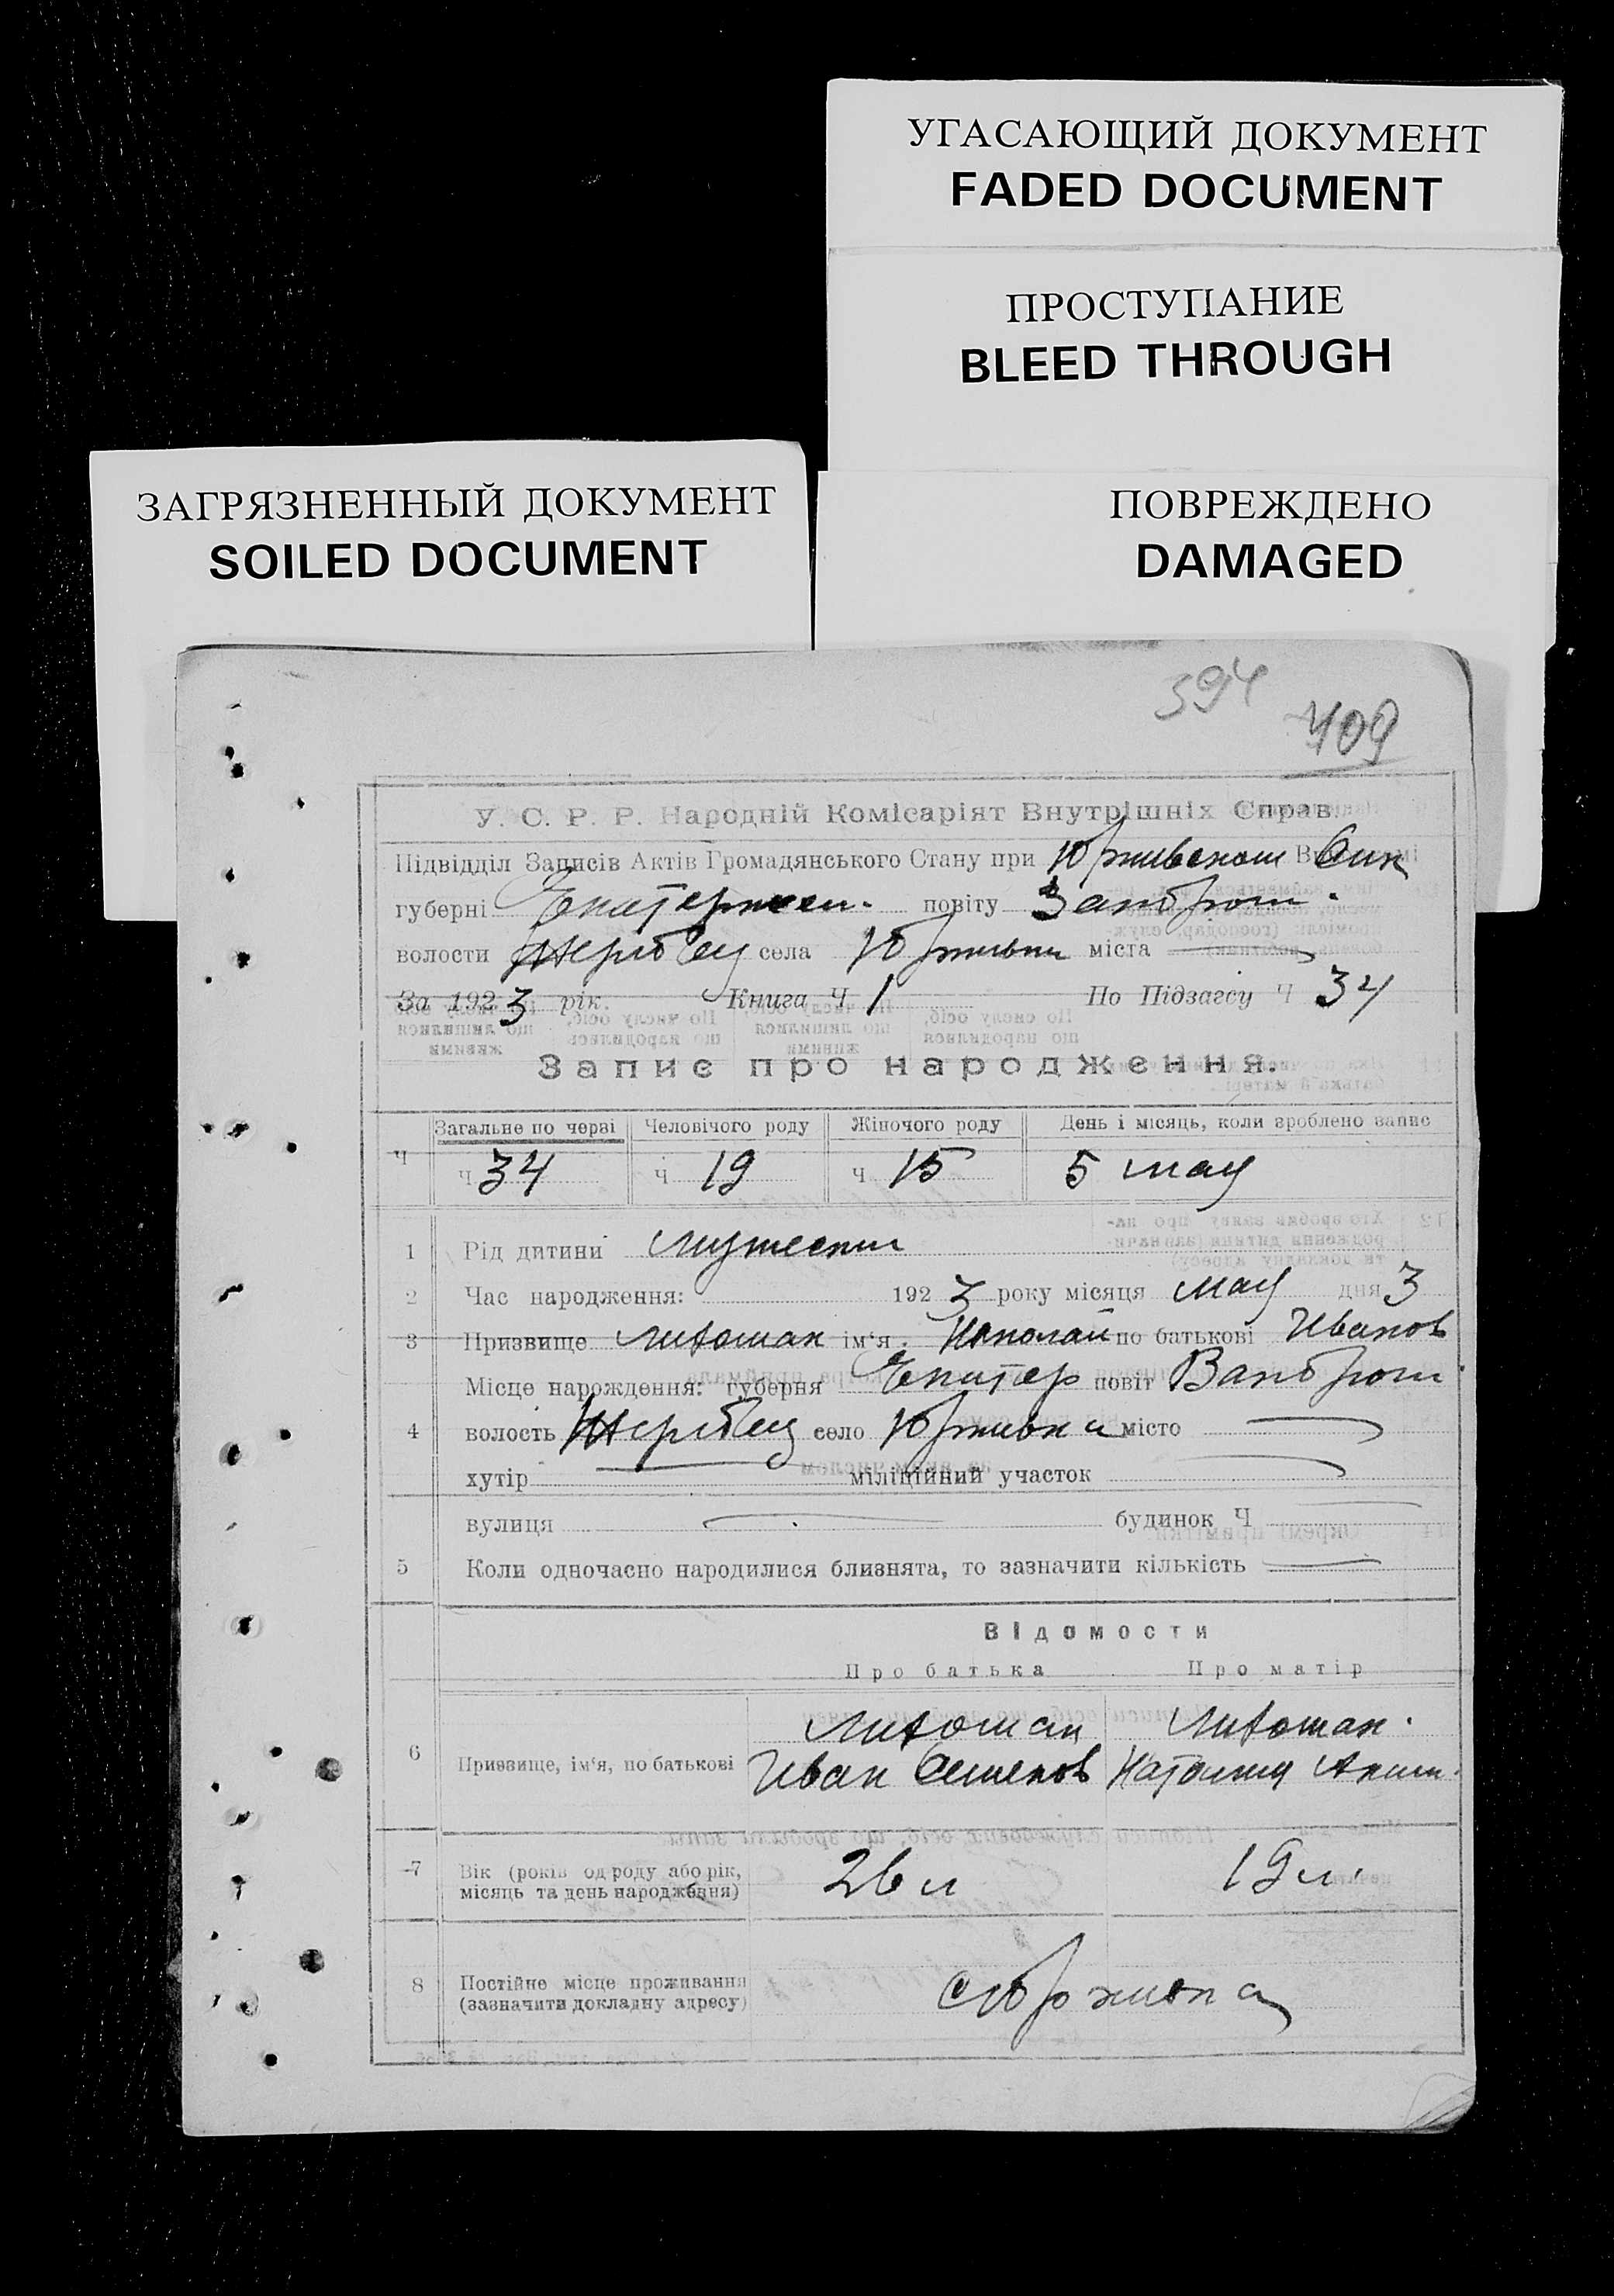 УГАСАЮЩИЙ ДОКУМЕНТ
FADED DOCUMENT
ПРОСТУПАНИЕ
BLEED THROUGH
ЗАГРЯЗНЕННЫЙ ДОКУМЕНТ
SOILED DOCUMENT
ПОВРЕЖДЕНО
DAMAGED
394
409
У. С. Р. Р. Народній Комісаріят Внутрішніх Справ.
Підвідділ Записів Актів Громадянського Стану при
губерні Екатер повіту Запорож.
волости села міста
За 1923 рік. Книга Ч 1 По Підзагсу Ч 34
Запис про народження.
Загальне по черзі Человічого роду Жіночого роду День і місяць, коли зроблено запис
Ч Ч 34 Ч 19 Ч 15 5 мая
1 Рід дитини мужеский
2 Час народження: 1923 року місяця мая дня 3
3 Призвище Литошак ім'я Николай по батькові Иванов
Місце народження: губерня Екатер повіт
4 волость село місто
хутір міліційний участок
вулиця будинок Ч
5 Коли одночасно народилися близнята, то зазначити кількість
Відомости
Про батька Про матір
Литошак Литошак.
6 Призвище, ім'я, по батькові Иван Семенов Наталия Аким.
7 Вік (років од роду або рік, місяць та день народження) 26 л 19 л.
8 Постійне місце проживання
(зазначити докладну адресу)